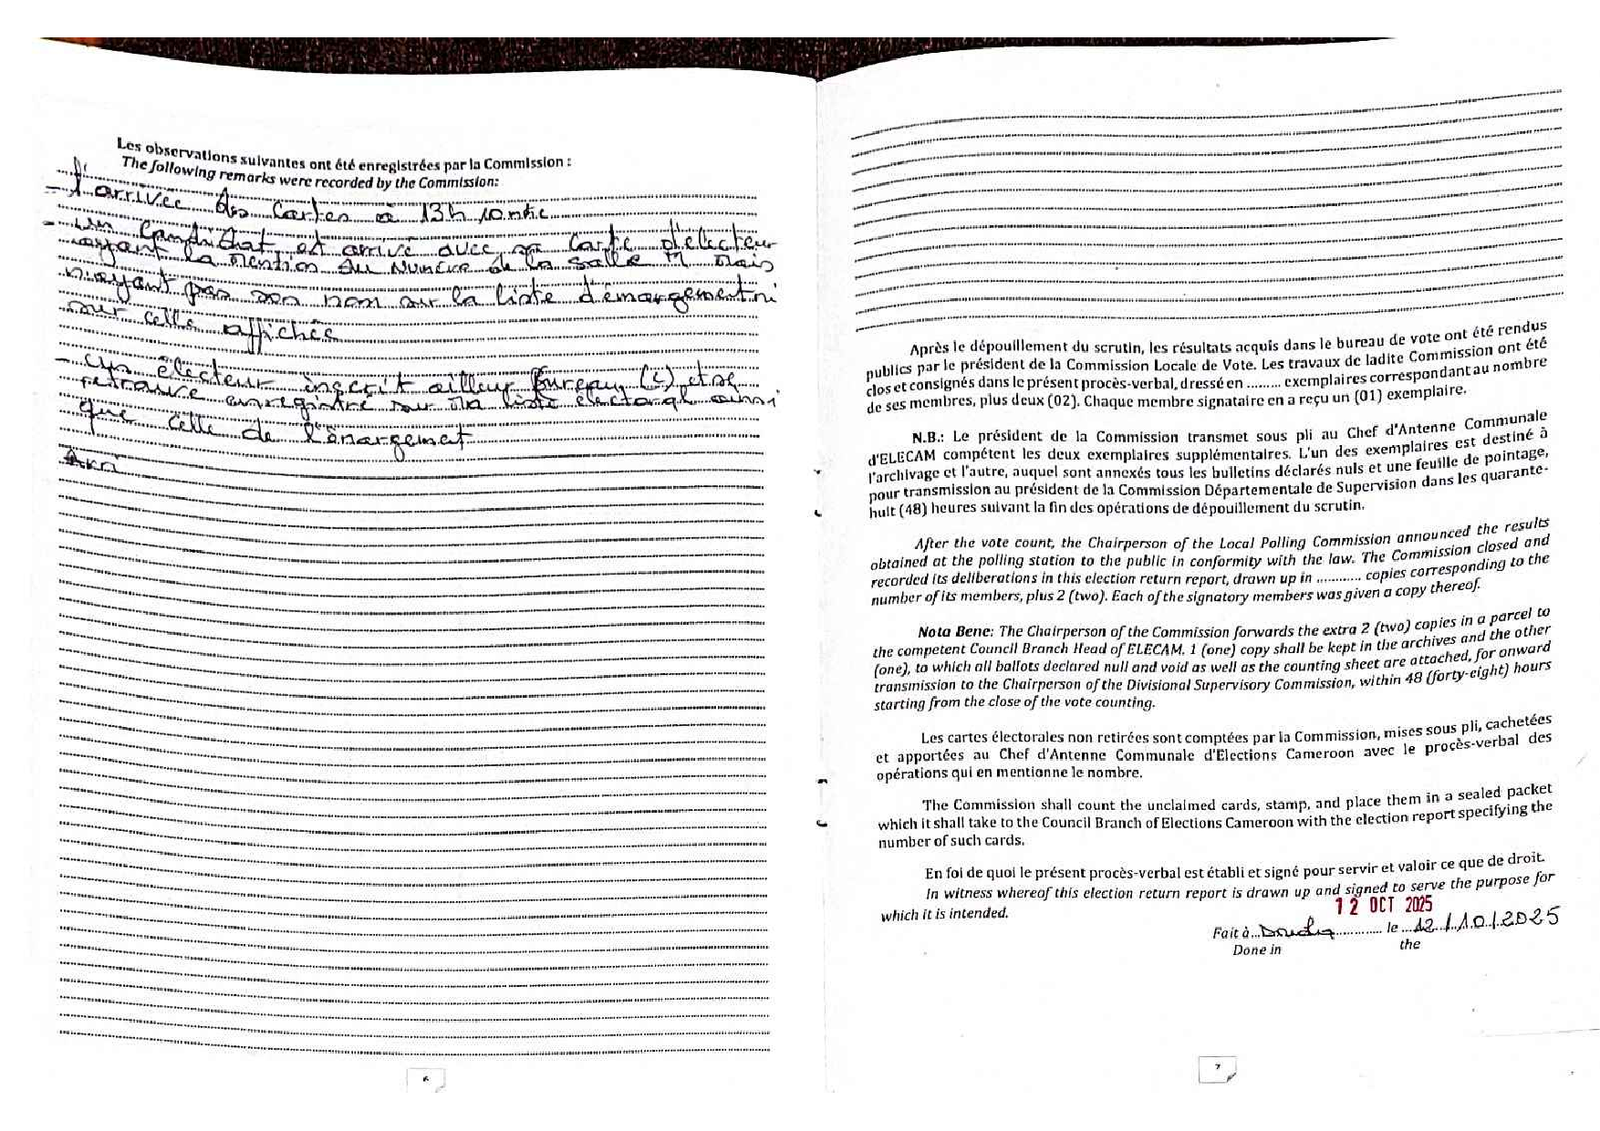 Les observations suivantes ont été enregistrées par la Commission :
The following remarks were recorded by the Commission:
- L'arrivée des cartes à 13h 10
- Un est arrivé avec sa carte d'électeur
ayant la mention du Numéro de la salle M mais
n'ayant pas son nom sur la liste d'émargement ni
sur celle affichée
- Un électeur inscrit ailleur Bureau (C) et se
enregistré sur la liste électoral ainsi
que celle de l'émargement
6
Après le dépouillement du scrutin, les résultats acquis dans le bureau de vote ont été rendus
publics par le président de la Commission Locale de Vote. Les travaux de ladite Commission ont été
clos et consignés dans le présent procès-verbal, dressé en ........ exemplaires correspondant au nombre
de ses membres, plus deux (02). Chaque membre signataire en a reçu un (01) exemplaire.
N.B.: Le président de la Commission transmet sous pli au Chef d'Antenne Communale
d'ELECAM compétent les deux exemplaires supplémentaires. L'un des exemplaires est destiné à
l'archivage et l'autre, auquel sont annexés tous les bulletins déclarés nuls et une feuille de pointage,
pour transmission au président de la Commission Départementale de Supervision dans les quarante-
huit (48) heures suivant la fin des opérations de dépouillement du scrutin.
After the vote count, the Chairperson of the Local Polling Commission announced the results
obtained at the polling station to the public in conformity with the law. The Commission closed and
recorded its deliberations in this election return report, drawn up in ........... copies corresponding to the
number of its members, plus 2 (two). Each of the signatory members was given a copy thereof.
Nota Bene: The Chairperson of the Commission forwards the extra 2 (two) copies in a parcel to
the competent Council Branch Head of ELECAM. 1 (one) copy shall be kept in the archives and the other
(one), to which all ballots declared null and void as well as the counting sheet are attached, for onward
transmission to the Chairperson of the Divisional Supervisory Commission, within 48 (forty-eight) hours
starting from the close of the vote counting.
Les cartes électorales non retirées sont comptées par la Commission, mises sous pli, cachetées
et apportées au Chef d'Antenne Communale d'Elections Cameroon avec le procès-verbal des
opérations qui en mentionne le nombre.
The Commission shall count the unclaimed cards, stamp, and place them in a sealed packet
which it shall take to the Council Branch of Elections Cameroon with the election report specifying the
number of such cards.
En foi de quoi le présent procès-verbal est établi et signé pour servir et valoir ce que de droit.
In witness whereof this election return report is drawn up and signed to serve the purpose for
which it is intended.
12 OCT 2025
Fait à Douala le 12/10/2025
Done in the
7